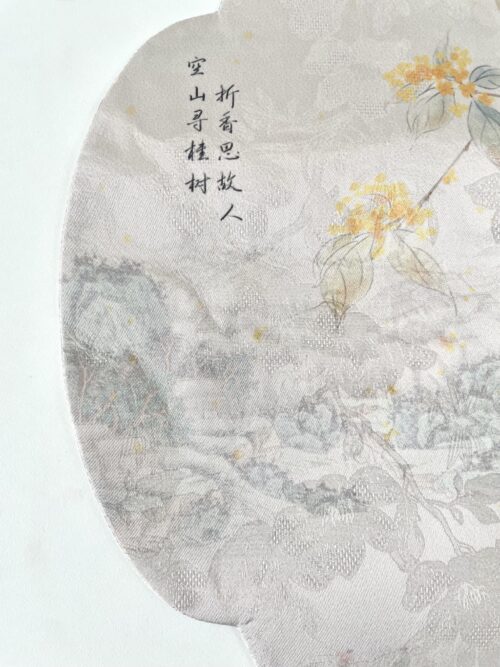 空山寻桂树
折香思故人